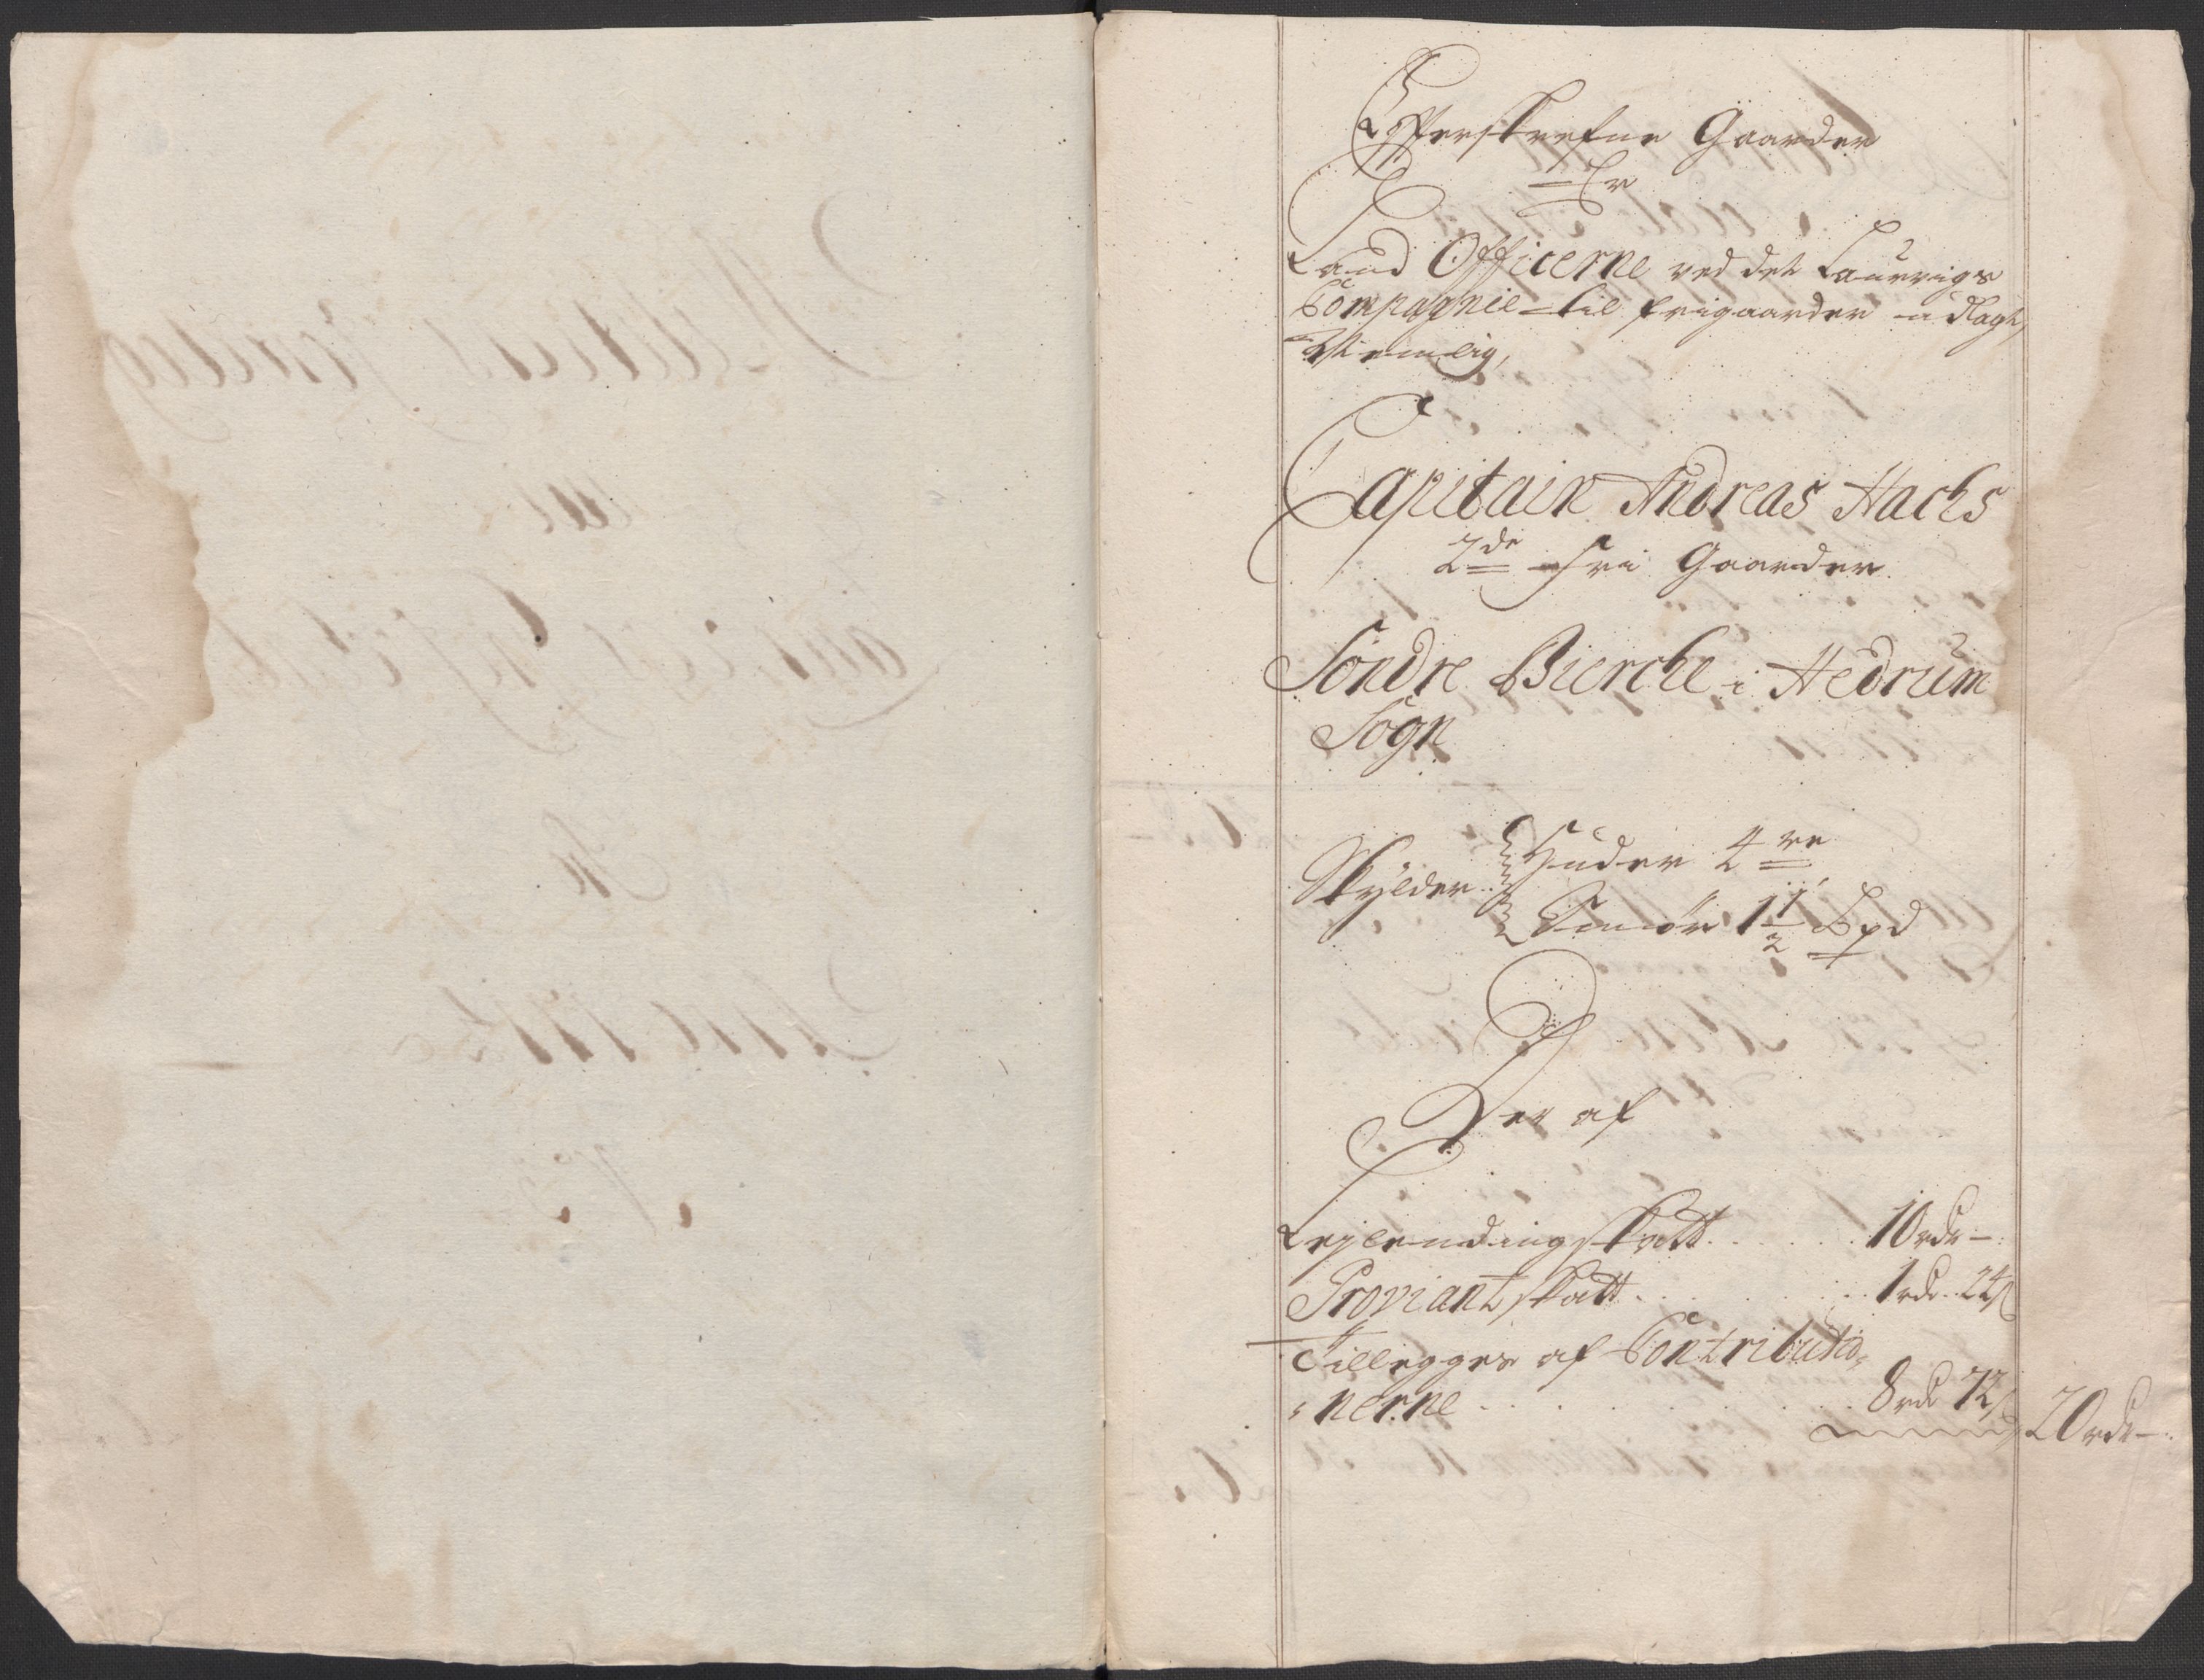 Efterskrefne Gaarder
Er
Land Officerne ved det Laurvigs
Compagnie til frigaarder udlagt,
Nemlig,
Capitain Andreas Hachs
2de Fri Gaarder.
Söndre Bierche i Hedrum
Sogn
Skylder Huder 4re
Smör 1 1/2 Bpd
Der af
Leylendingskatt . . . . . 10 rdr –
Proviantskatt . . . . . . 1 rdr 24 ß
Tillegges af Contributio-
nerne . . . . . . . . 8 rdr 72 ß 20 rdr –